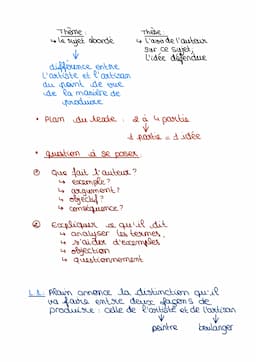 Thème :
Thèse :
↳ le sujet abordé
↳ l'avis de l'auteur
sur ce sujet,
l'idée défendue
différence entre
l'artiste et l'artisan
au point de vue
de la manière de
produire
• Plan du texte : 2 à 4 parties
1 partie = 1 idée
• question à se poser :
① Que fait l'auteur ?
↳ exemple ?
↳ argument ?
↳ objectif ?
↳ conséquence ?
② Expliquer ce qu'il dit
↳ analyser les termes,
↳ s'aider d'exemples
↳ objection
↳ questionnement
L 1 : Alain annonce la distinction qu'il
va faire entre deux façons de
produire : celle de l'artiste et de l'artisan
peintre
boulanger